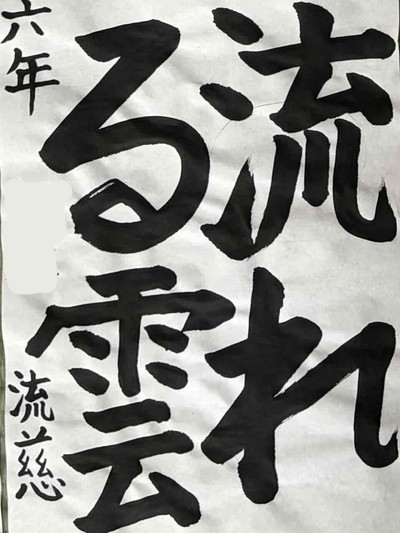 流れ
る雲
六年
流慈